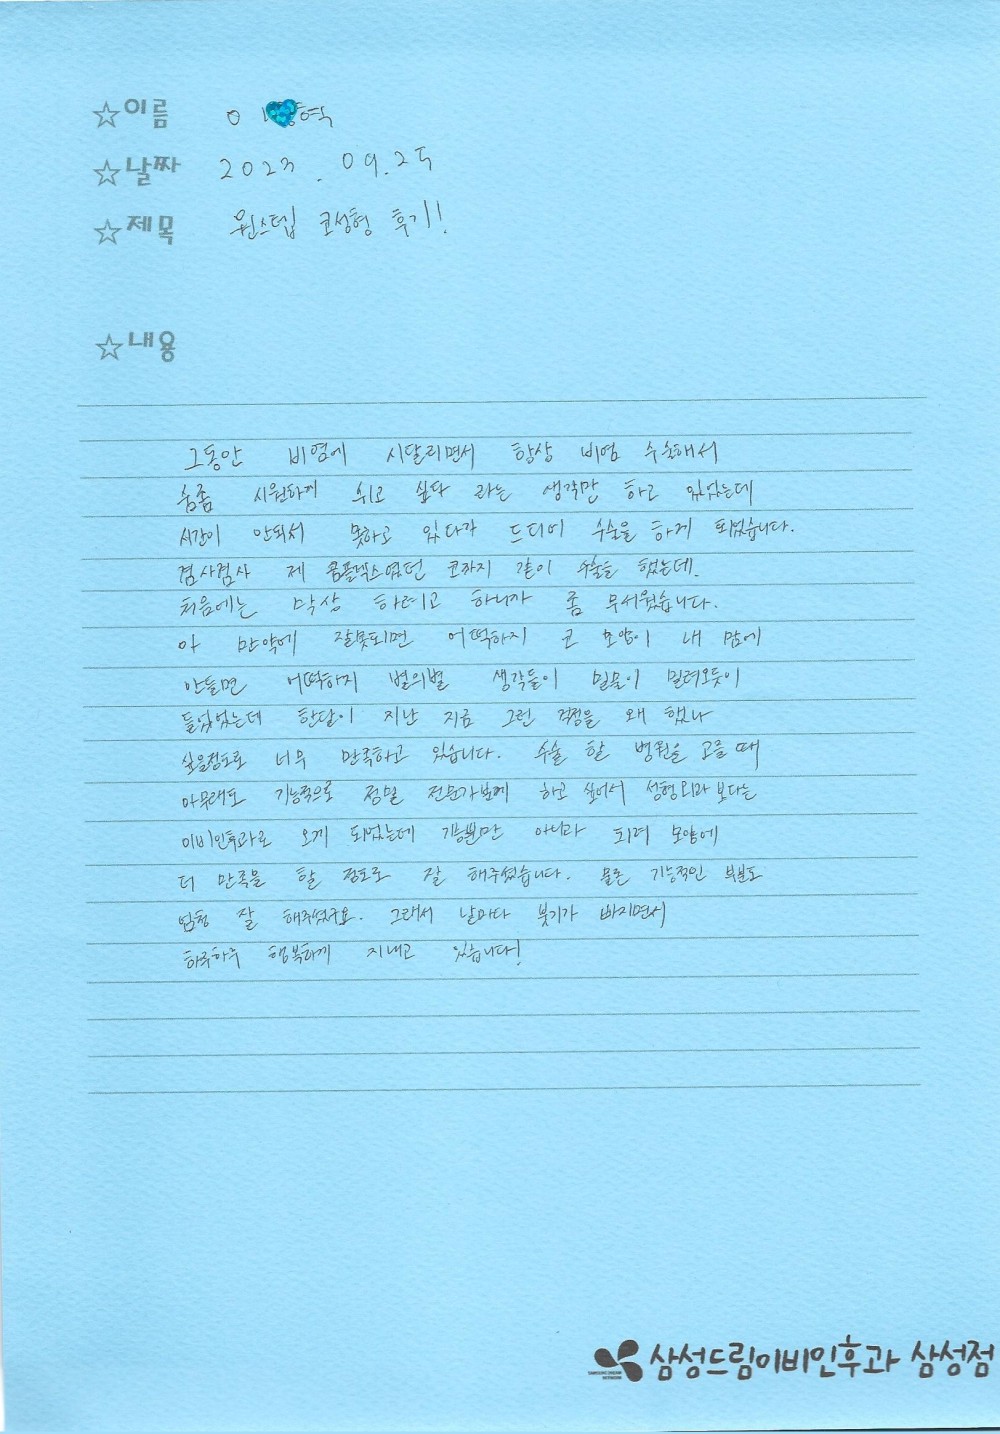 ☆이름 이 혁
☆날짜 2023. 09. 25
☆제목 원스텝 코성형 후기!
☆내용
그동안 비염에 시달리면서 항상 비염 수술해서
숨좀 시원하게 쉬고 싶다 라는 생각만 하고 있었는데
시간이 안되서 못하고 있다가 드디어 수술을 하게 되었습니다.
겸사겸사 제 콤플렉스였던 코까지 같이 수술을 했는데.
처음에는 막상 하려고 하니까 좀 무서웠습니다.
아 만약에 잘못되면 어떡하지 코 모양이 내 맘에
안들면 어떡하지 별의별 생각들이 밀물이 밀려오듯이
들었었는데 한달이 지난 지금 그런 걱정을 왜 했나
싶을정도로 너무 만족하고 있습니다. 수술 할 병원을 고를 때
아무래도 기능적으로 정밀 전문가분께 하고 싶어서 성형외과 보다는
이비인후과로 오게 되었는데 기능뿐만 아니라 되려 모양에
더 만족을 할 정도로 잘 해주셨습니다. 물론 기능적인 부분도
엄청 잘 해주셨구요. 그래서 날마다 붓기가 빠지면서
하루하루 행복하게 지내고 있습니다!
SAMSUNG DREAM NETWORK
삼성드림이비인후과 삼성점